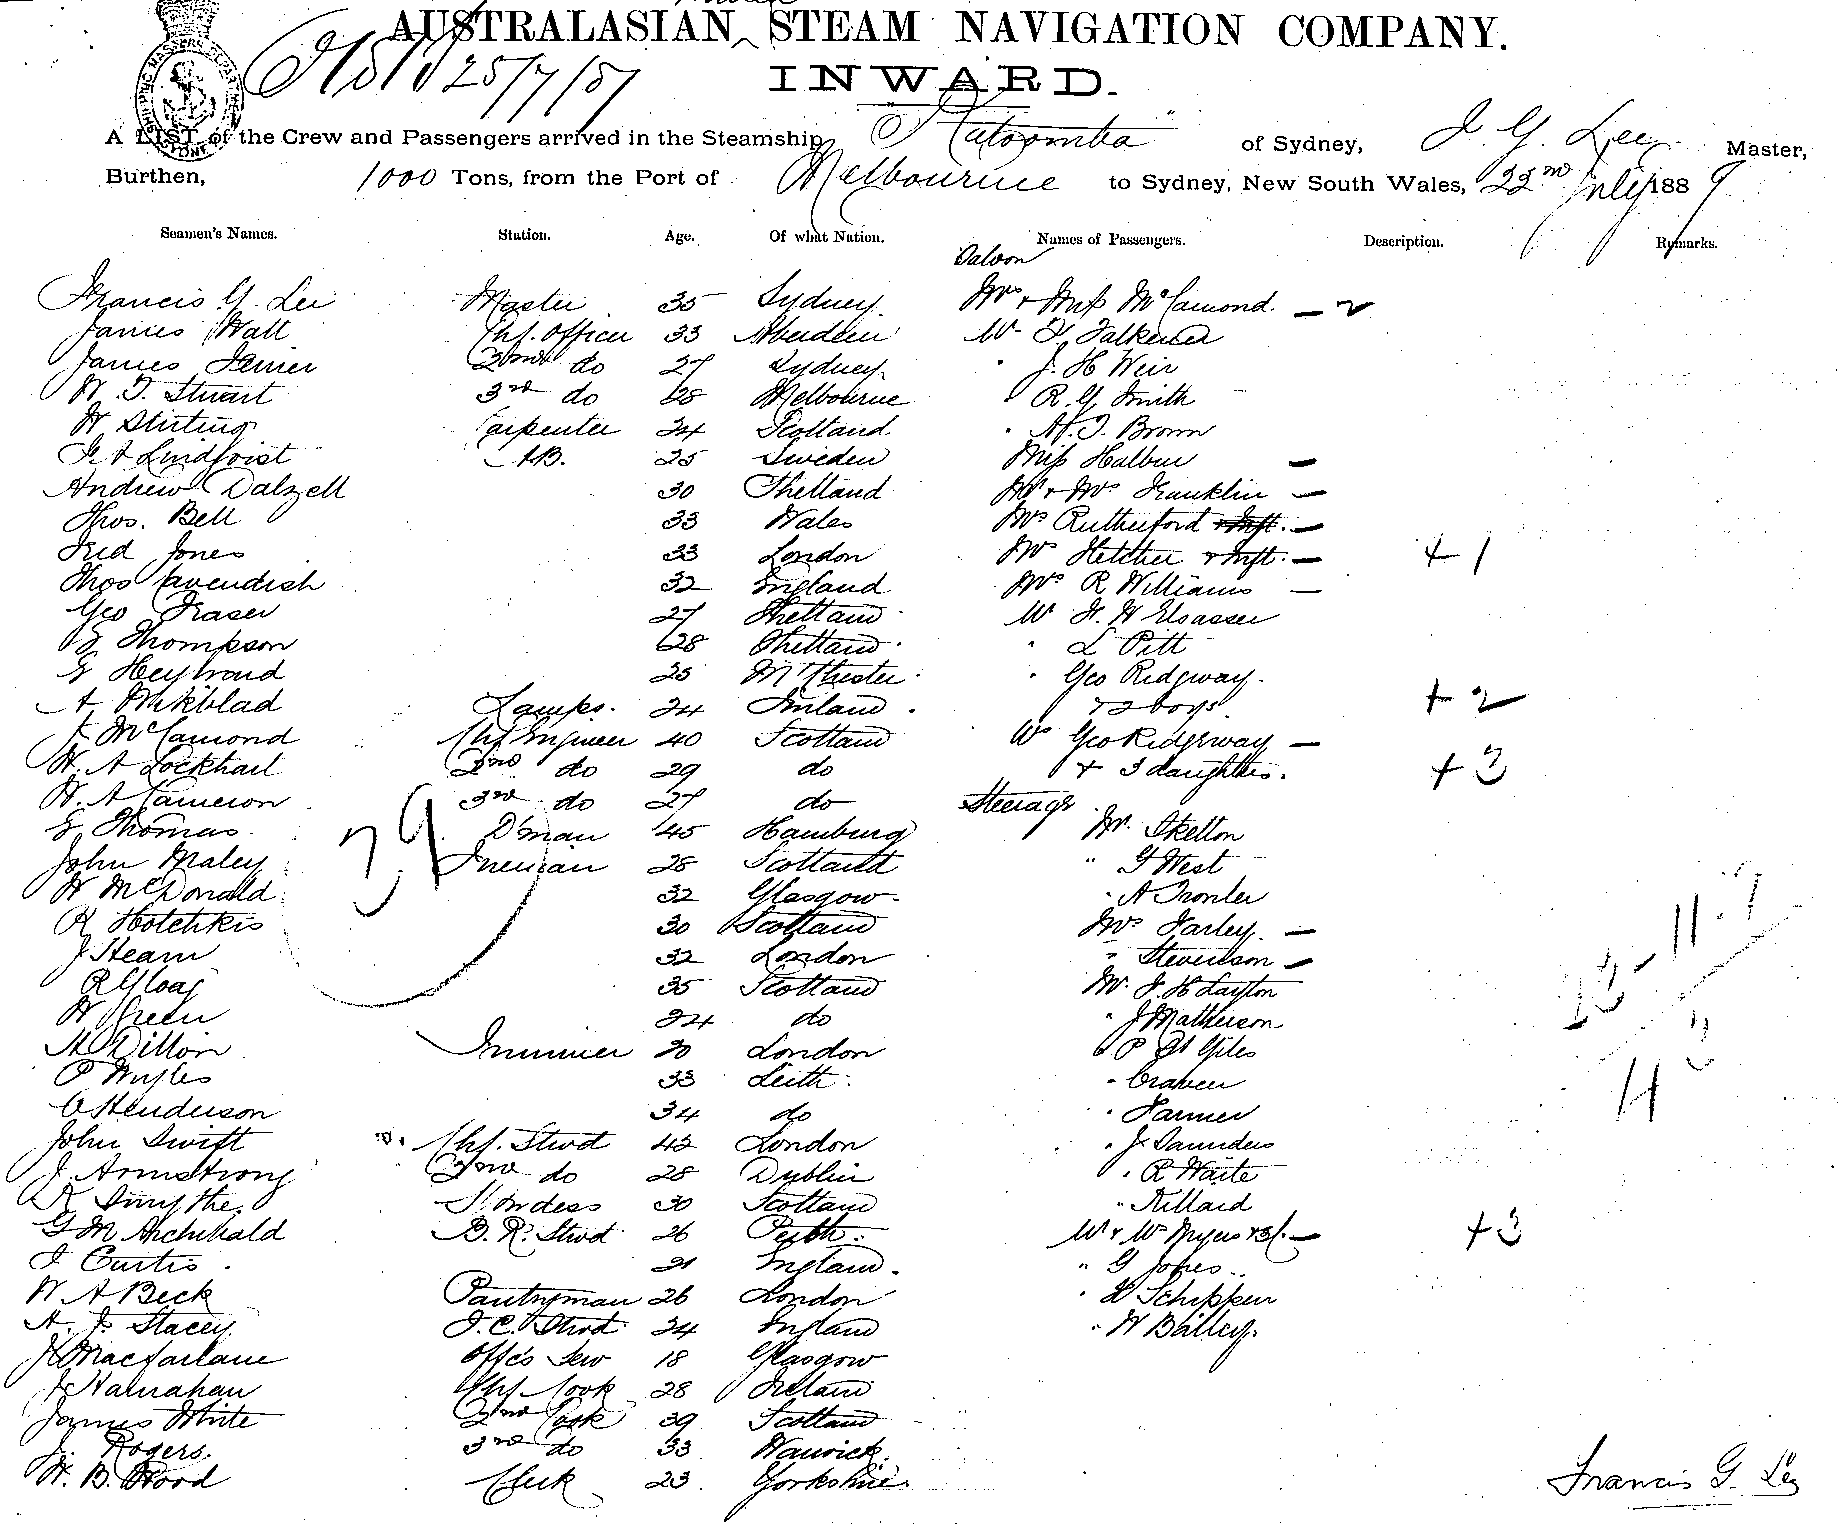 AUSTRALASIAN STEAM NAVIGATION COMPANY.
25/7/87
INWARD.
A LIST of the Crew and Passengers arrived in the Steamship Katoomba of Sydney, F. G. Lee Master,
Burthen, 1000 Tons, from the Port of Melbourne to Sydney, New South Wales, 22nd July 1889
Seamen's Names. Station. Age. Of what Nation. Names of Passengers. Description. Remarks.
Saloon
Francis G. Lee Master 35 Sydney Mrs + Miss McCamond. — 2
James Watt Chf. Officer 33 Aberdeen Mr Falkener
James 2nd do 27 Sydney " J. H Weir
W. T. Stuart 3rd do 28 Melbourne " R. G Smith
W Stirling Carpenter 34 Scotland " Brown
Lindqvist A.B. 25 Sweden Miss Halbur —
Andrew Dalzell 30 Shetland Mr + Mrs Franklin —
Thos. Bell 33 Wales Mrs Rutherford + Inft. —
Fred Jones 33 London Mrs Fletcher + Inft. — + 1
Thos Cavendish 32 England Mrs R Williams —
Geo Fraser 27 Shetland Mr F. W Elsasser
Thompson 28 Shetland " L Pitt
25 M'Chester " Geo Ridgway.
A. Wikblad Lamps. 24 Finland. + 2 boys. + 2
J McCamond Chf Engineer 40 Scotland Mrs Geo Ridgway —
W. A Lockhart 2nd do 29 do + 3 daughters. + 3
W. A Cameron 3rd do 27 do Steerage
Thomas D'man 45 Hamburg Mr. Skelton
39
John Maley Fireman 28 Scotland " G West
W McDonald 32 Glasgow " A
R Hotchkis 30 Scotland Mrs Farley. —
J Hearn 32 London " Stevenson —
R Gloag 35 Scotland Mr. J. H Layton
W Green 24 do " J Mathieson
Dillon Trimmer 30 London " P St Giles
P Wyles 33 Leith " Craven
Henderson 34 do " Farmer
John Swift Chf. Stwd 42 London " J. Saunders
J. Armstrong 2nd do 28 Dublin " R Waite
Smythe. Stwdess 30 Scotland " Killard
G. M Archibald B. R. Stwd 26 Perth. Mr + Mrs Myers + 3 — + 3
Curtis 21 England. " G Jones
W A Beck Pantryman 26 London " Schipken
A. Stacey Stwd 24 England " W Bailey.
Macfarlane Offcs 18 Glasgow
J Hanrahan Chf Cook 28 Ireland
James White 2nd Cook 39 Scotland
J. Rogers. 3rd do 33 Warwick.
W. B. Wood Clerk 23 Yorkshire.
Francis G. Lee